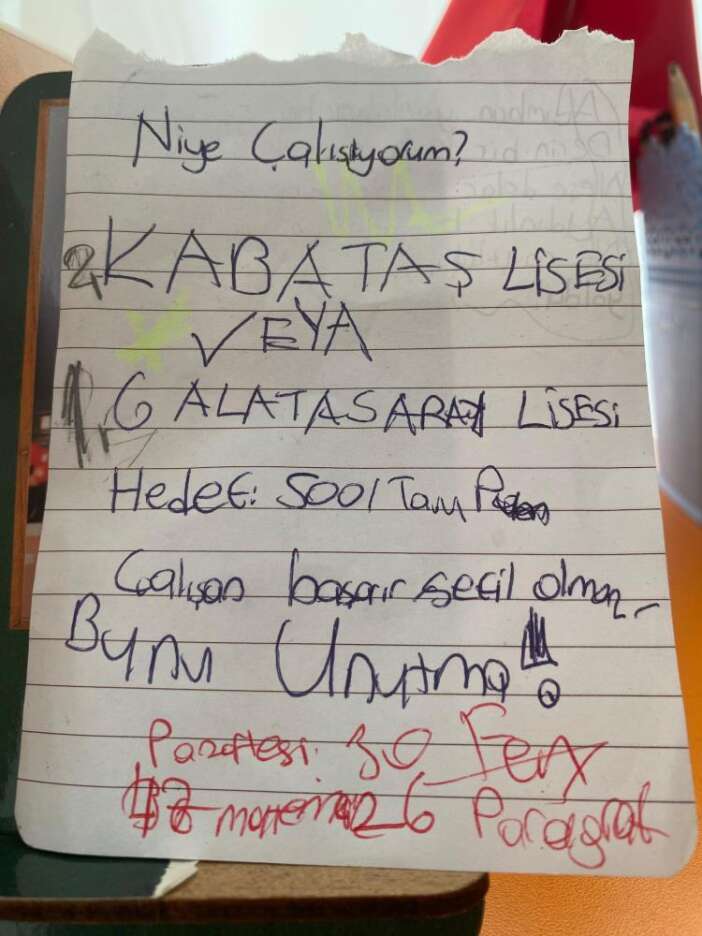 Niye Çalışıyorum?
2. KABATAŞ LİSESİ
VEYA
1. GALATASARAY LİSESİ
Hedef: 500/Tam
Çalışan başarır sefil olmaz
Bunu Unutma!!!
Pazartesi: 30 Fen
26 Paragraf